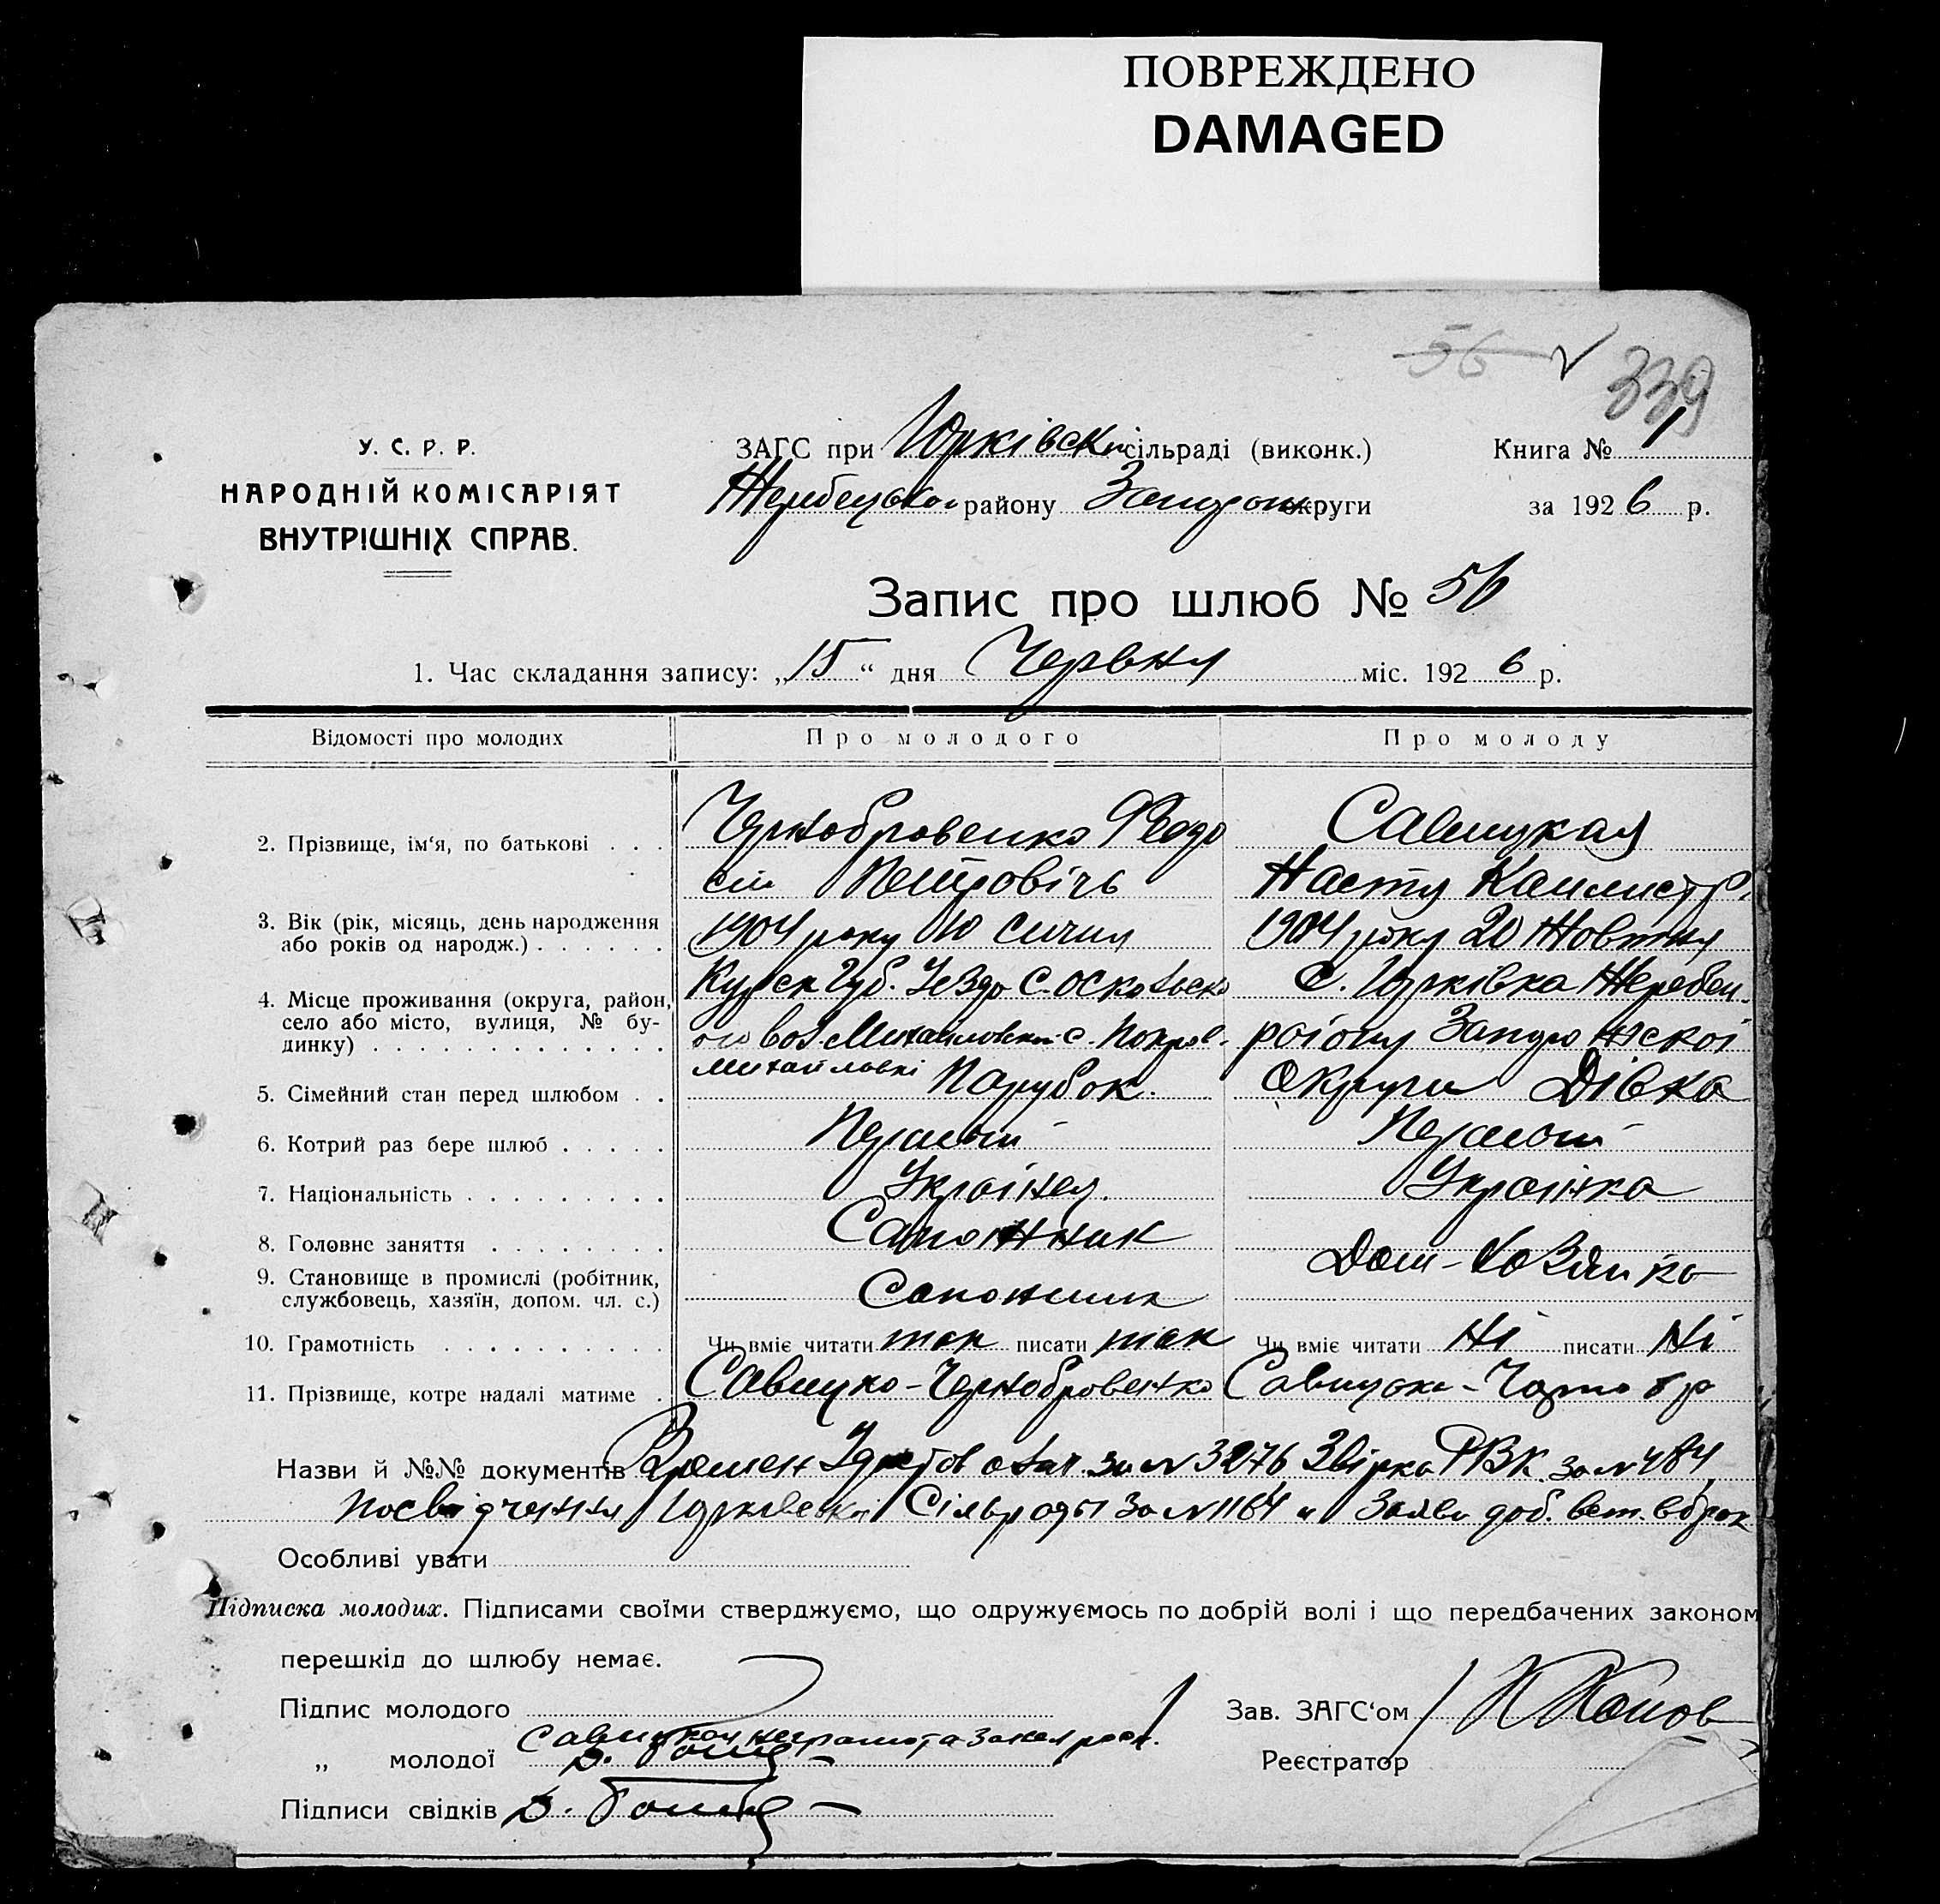 ПОВРЕЖДЕНО
DAMAGED
56 339
У. С. Р. Р.
НАРОДНІЙ КОМІСАРІЯТ
ВНУТРІШНІХ СПРАВ.
ЗАГС при Юрківскій сільраді (виконк.) Книга № 1
Жеребецькои району Запорож округи за 1926 р.
Запис про шлюб № 56
1. Час складання запису: „15“ дня Червня міс. 1926 р.
Відомості про молодих Про молодого Про молоду
2. Прізвище, ім‘я, по батькові Чернобровенко Феодо Савицкая
сій Петровічь Настя Каллистр.
3. Вік (рік, місяць, день народження або років од народж.) 1904 року 10 Сичня 1904 року 20 Жовтня
4. Місце проживання (округа, район, село або місто, вулиця, № будинку) Курск Губ. Уездо С. Оскольско С. Юрківка Жеребец.
ого вол. Михайловкии с. Покров. району Запорожскої
Михайловкі Округи
5. Сімейний стан перед шлюбом Парубок. Дівка
6. Котрий раз бере шлюб Первый Первый
7. Національність Українец. Українка
8. Головне заняття Сапожник
9. Становище в промислі (робітник, службовець, хазяїн, допом. чл. с.) Сапожник Дом-Хозяйка
10. Грамотність Чи вміє читати так писати так Чи вміє читати Ні писати Ні
11. Прізвище, котре надалі матиме Савицко-Чернобровенко Савицка-Чорнобр
Назви й №№ документів Времен Удостов за N 3276 Звірка РВК за N 484
посвідчення Юрковскої Сільради за N 1164 и Заяви доб. вет.
Особливі уваги
Підписка молодих. Підписами своїми стверджуємо, що одружуємось по добрій волі і що передбачених законом
перешкід до шлюбу немає.
Підпис молодого Зав. ЗАГС‘ом
Савицкая неграмотна
„ молодої Реєстратор
Підписи свідків